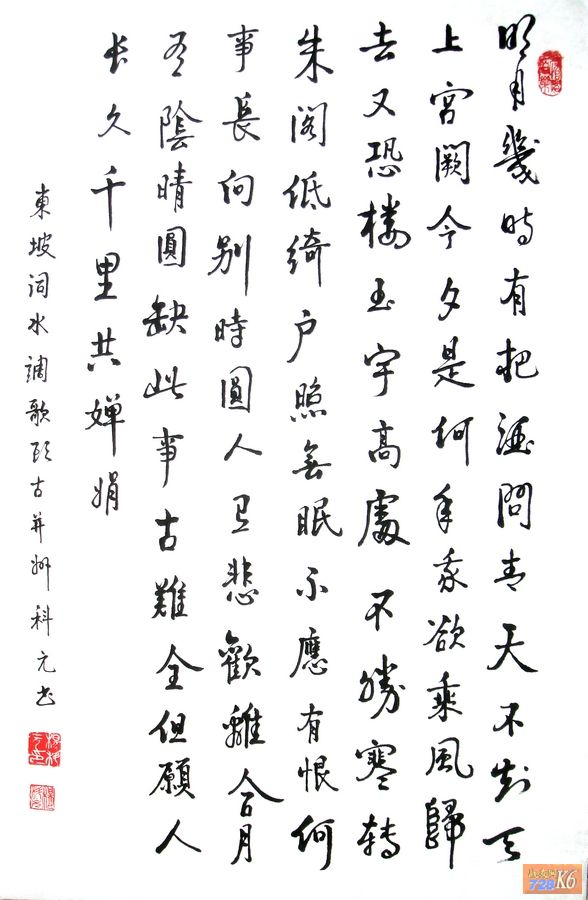 明月幾時有把酒問青天不知天
上宮闕今夕是何年我欲乘風歸
去又恐楼玉宇高處不勝寒轉
朱閣低綺户照無眠不應有恨何
事長向别時圓人有悲歡離合月
有陰晴圓缺此事古難全但願人
長久千里共嬋娟
東坡詞水調歌頭古并州科元书
728 K6